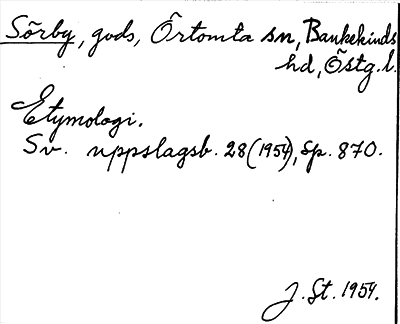 Sörby, gods, Örtomta sn, Bankekinds
hd, Östg. l.
Etymologi.
Sv. uppslagsb. 28 (1954), sp. 870.
J. St. 1954.